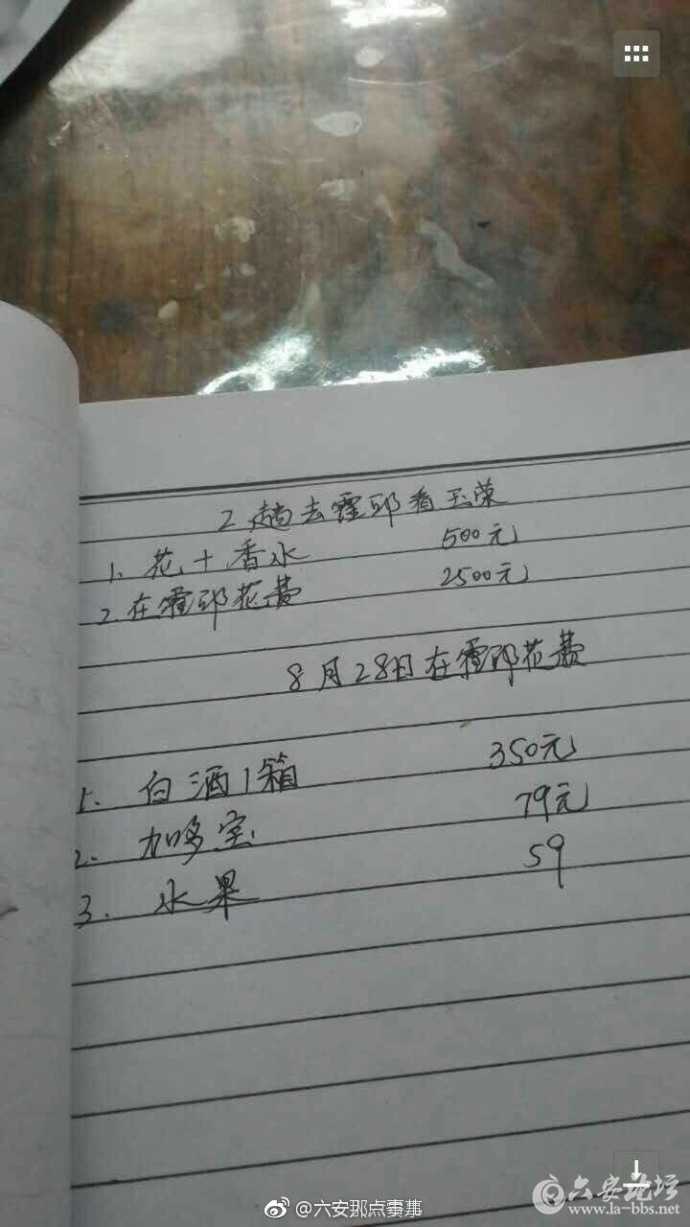 2趟去霍邱看玉荣
1、花+香水 500元
2、在霍邱花费 2500元
8月28日在霍邱花费
1. 白酒1箱 350元
2. 加哆宝 79元
3. 水果 59
@六安那点事儿
六安论坛
www.la-bbs.net